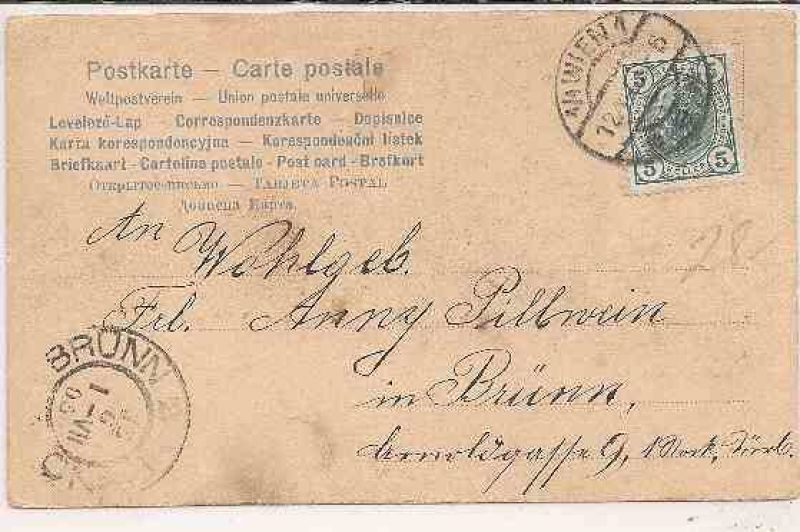 Postkarte – Carte postale
Weltpostverein – Union postale universelle
Levelező-Lap – Correspondenzkarte – Dopisnice
Karta korespondencyjna – Korespondenční listek
Briefkaart - Cartolina postale - Post card - Brefkort
Открытое письмо – Tarjeta Postal
Дописна Карта.
WIEN 1
5 5
5 5
HELLER
An
Wohlgeb.
Frl. Anny Pillwein
in Brünn,
gasse 9, 1 Stock,
78
BRÜNN
1
VII
03